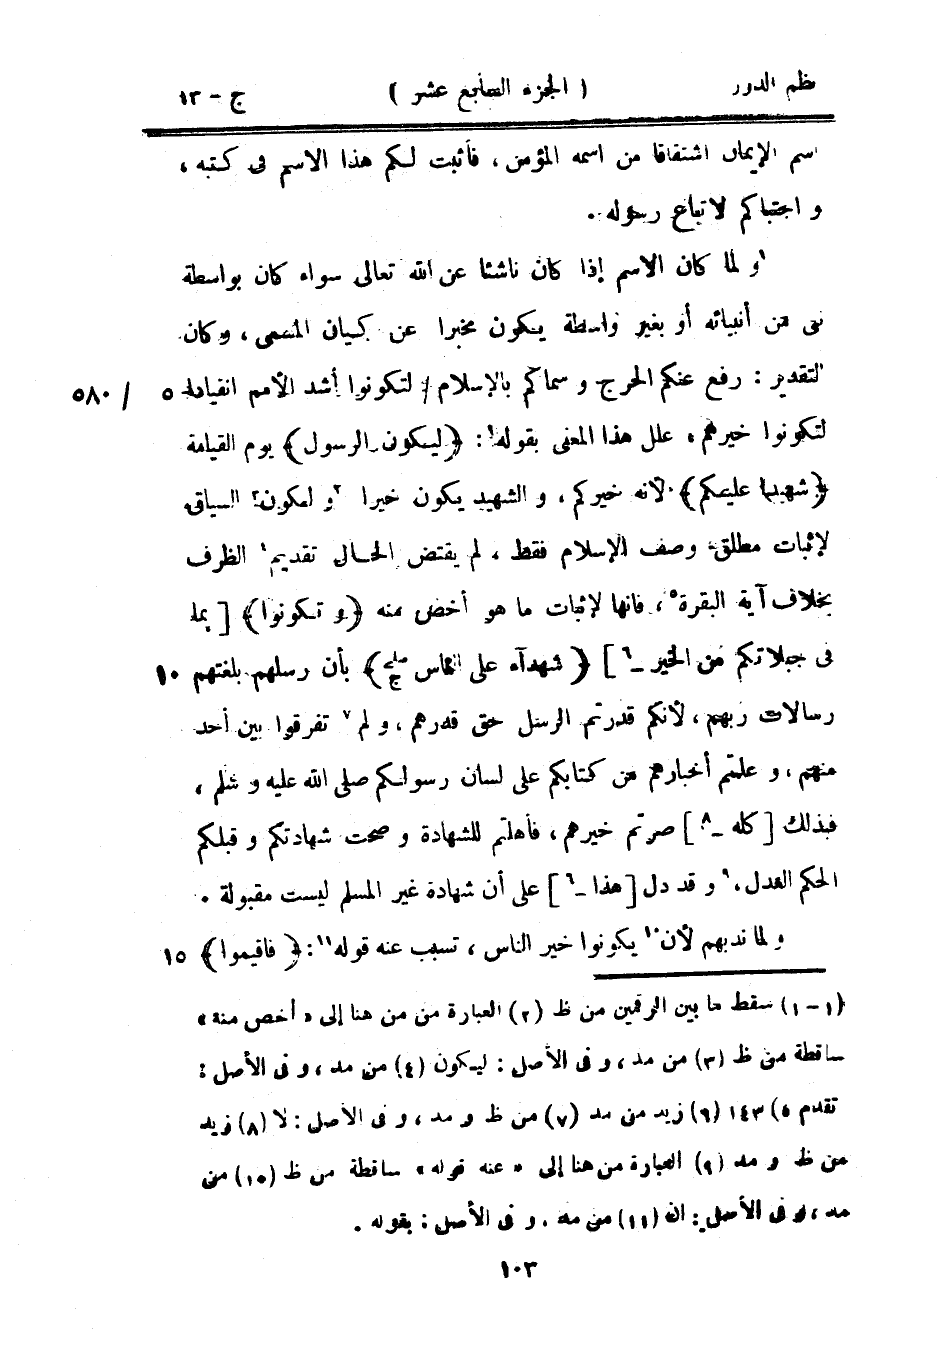 نظم الدرر ( الجزء السابع عشر ) ج - ١٣
اسم الإيمان اشتقاقا من اسمه المؤمن ، فأثبت لكم هذا الاسم فى كتبه ،
و اجتباكم لاتباع رسوله .
١و لما كان الاسم إذا كان ناشئا عن الله تعالى سواء كان بواسطة
نبى من أنبيائه أو بغير واسطة يكون مخبرا عن كيان المسمى ، وكان
التقدير : رفع عنكم الحرج و سماكم بالإسلام / لتكونوا أشد الأمم انقيادا ٥ / ٥٨٠
لتكونوا خيرهم ، علل هذا المعنى بقوله١ : ﴿ليكون الرسول﴾ يوم القيامة
﴿شهيدا عليكم﴾ لأنه خيركم ، و الشهيد يكون خيرا ٢و لكون٣ السياق
لإثبات مطلق وصف الإسلام فقط ، لم يقتض الحال تقديم٤ الظرف
بخلاف آية البقرة٥ ، فانها لإثبات ما هو أخص منه ﴿و تكونوا﴾ [ بما
فى جبلاتكم من الخير ـ٦ ] ﴿شهدآء على الناس صلے ج﴾ بأن رسلهم بلغتهم ١٠
رسالات ربهم ، لأنكم قدرتم الرسل حق قدرهم ، و لم٧ تفرقوا بين أحد
منهم ، و علمتم أخبارهم من كتابكم على لسان رسولكم صلى الله عليه و سلم ،
فبذلك [ كله ـ٨ ] صرتم خيرهم ، فأهلتم للشهادة و صحت شهادتكم و قبلكم
الحكم العدل ،٩ و قد دل [ هذا ـ٦ ] على أن شهادة غير المسلم ليست مقبولة .
و لما ندبهم لأن١٠ يكونوا خير الناس ، تسبب عنه قوله١١ : ﴿فاقيموا﴾ ١٥
(١-١) سقط ما بين الرقمين من ظ (٢) العبارة من هنا إلى « أخص منه »
ساقطة من ظ (٣) من مد ، و فى الأصل : ليكون (٤) من مد ، و فى الأصل :
تقدم (٥) ١٤٣ (٦) زيد من مد (٧) من ظ و مد ، و فى الأصل : لا (٨) زيد
من ظ و مد (٩) العبارة من هنا إلى « عنه قوله » ساقطة من ظ (١٠) من
مد ، و فى الأصل : ان (١١) من مد ، و فى الأصل : بقوله .
١٠٣